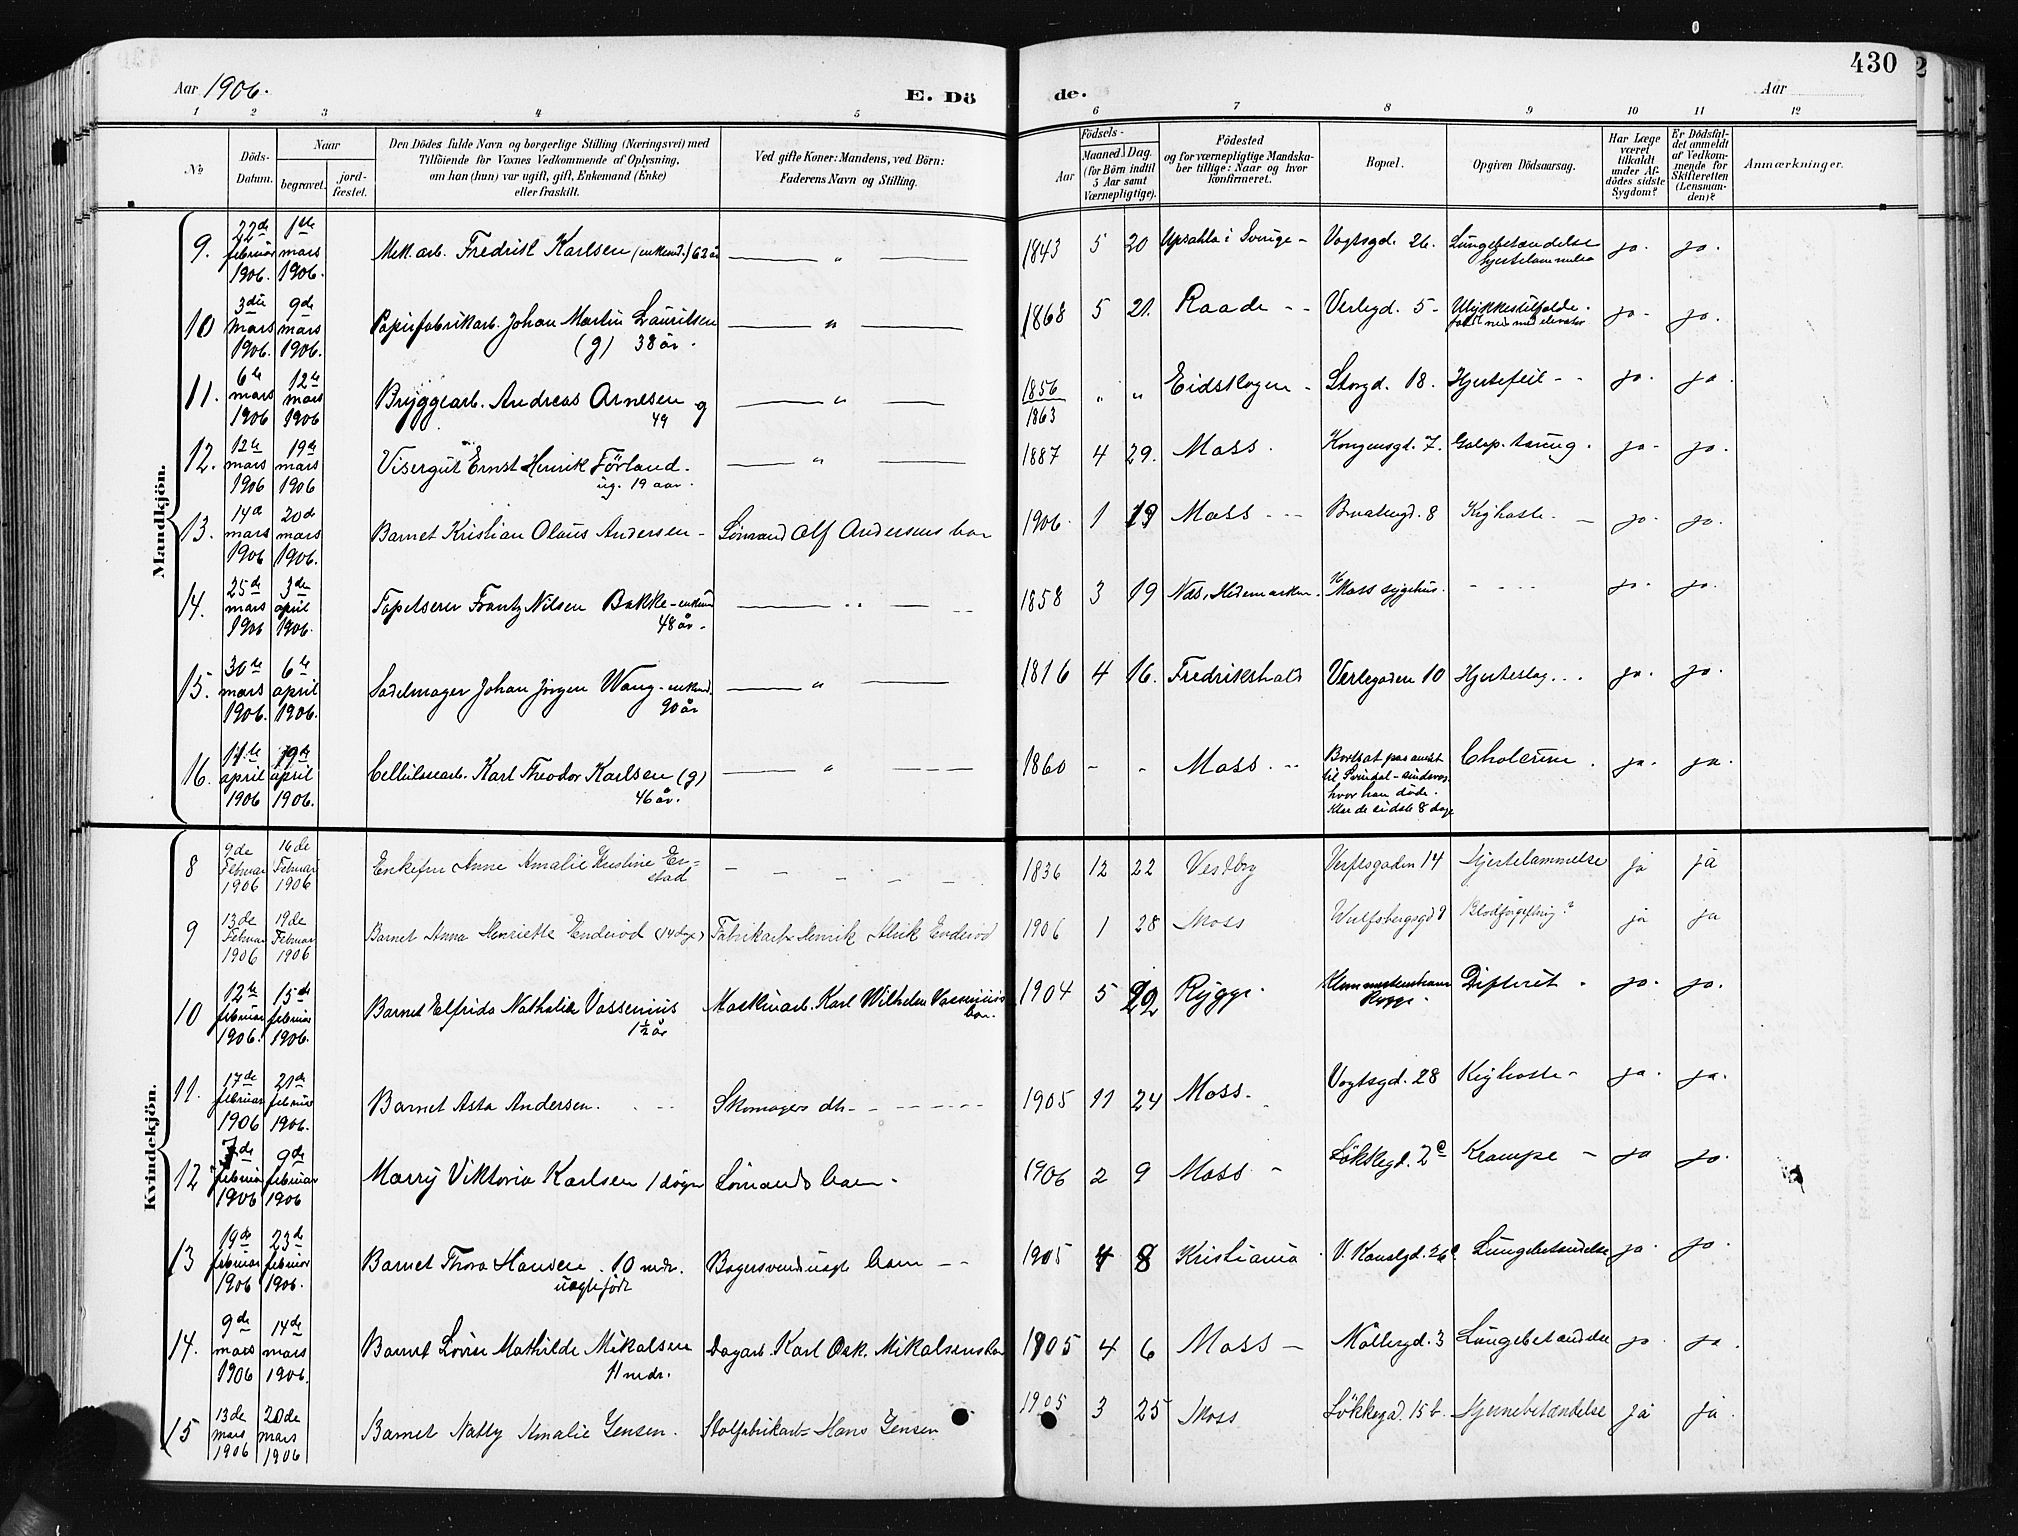 430
Aar 1906.
E. Dö
de.
Aar
1 2 3 4 5 6 7 8 9 10 11 12
No
Döds-
Datum.
Naar
begravet.
jord-
fæstet.
Den Dödes fulde Navn og borgerlige Stilling (Næringsvei) med
Tilföiende for Voxnes Vedkommende af Oplysning,
om han (hun) var ugift, gift, Enkemand (Enke)
eller fraskilt.
Ved gifte Koner: Mandens, ved Börn:
Faderens Navn og Stilling.
Födsels-
Aar
Maaned. Dag.
(for Börn indtil
5 Aar samt
Værnepligtige).
Födested
og for værnepligtige Mandska-
ber tillige: Naar og hvor
konfirmeret.
Bopæl.
Opgiven Dödsaarsag.
Har Læge
været
tilkaldt
under Af-
dödes sidste
Sygdom?
Er Dödsfal-
det anmeldt
af Vedkom-
mende for
Skifteretten
(Lensman-
den)?
Anmærkninger.
Mandkjön.
9. 22de februar 1906. 1ste mars 1906. Mek. arb. Fredrik Karlsen (enkem.) 62 år — " — 1843 5 20 Upsahla i Sverige - Vogtsgd. 26. Lungebetændelse hjertelammelse ja. ja.
10 3die mars 1906. 9de mars 1906. Papirfabrikarb. Johan Martin Lauritsen (g) 38 år. — " — 1868 5 21. Raade - - Verlegd. 5 - Ulykkestilfælde. faldt ned med elevator ja - ja.
11. 6te mars 1906 12te mars 1906 Bryggearb. Andreas Arnesen g 49 — " — 1856 1863 " " Eidskogen - Storgd. 18. Hjertefeil - - ja. ja.
12. 12te mars 1906 19de mars 1906 Visergut Ernst Henrik Förland. ug. 19 aar. — " — 1887 4 29. Moss. Kongensgd. 7. Galop. tæring. ja - ja.
13. 14de mars 1906 20de mars 1906. Barnet Kristian Olaus Andersen - Sömand Alf Andersens barn 1906. 1 19 Moss - - - 8 Kighoste. — ja - ja.
14. 25de mars 1906 3die april 1906. Tapetserer Frantz Nilsen Bakke - enkem 48 år. — " — 1858 3 19 Næs, Hedemarken. Moss sygehus. - - - - ja - ja.
15. 30te mars 1906. 6te april 1906. Sadelmager Johan Jörgen Wang - enkem. 90 år — " — 1816 4 16. Fredrikshald Værlegaden 10 Hjerteslag... ja. ja.
16. 11te april 1906 19de april 1906. Cellulosearb. Karl Theodor Karlsen (g) 46 år. — " — 1860 - - Moss. - - Bortsat paa amtet til Svindal - sindssyg hvor han döde. Kolerine de sidste 8 dage Cholerine. ja. ja.
Kvindekjön.
8 9de Februar 1906 16de Februar 1906 Enkefru Anne Amalie Kristine Er= stad - - - - - 1836 12 22 Vestby Verftsgaden 14 Hjertelammelse ja ja
9 13de Februar 1906 19de Februar 1906 Barnet Anna Henriette Enderöd (14 dge) Fabrikarb= Henrik Alrik Enderöd 1906 1 28 Moss Wulfsbergsgd 9 Blodforgiftning? ja ja
10 12te februar 1906. 15de februar 1906. Barnet Elfrida Nathalie Vassenius 1½ år Maskinarb. Karl Wilhelm Vassenius barn. 1904 5 22 Rygge. Rygge. Difterit - ja. ja.
11. 17de februar 1906 21de februar 1906. Barnet Asta Andersen. - - - Skomagers dtr. - - - - - - 1905 11 24 Moss. Vogtsgd. 28 Kighoste - ja. ja.
12 7de februar 1906 9de februar 1906 Marry Viktoria Karlsen 1 dögn Sömands barn - 1906 2 9 Moss - Lökkegd. 2c Krampe - ja ja.
13 19de februar 1906 23de februar 1906. Barnet Thora Hansen. 10 mdr. uægtefödt Bagersvend uægt barn - - 1905 4 8 Kristiania. V. Kanalgd. 26 Lungebetændelse ja. ja.
14. 9de mars 1906 14de mars 1906. Barnet Lovise Mathilde Mikalsen 11 mdr. Dagarb. Karl Osk. Mikalsens barn 1905 4 6 Moss - Möllergd. 3 Lungebetændelse ja. ja.
15 13de mars 1906 20de mars 1906 Barnet Natty Amalie Jensen. Stolfabrikarb= Hans Jensen 1905 3 25 Moss Lökkegd. 15 b. Hjernebetændelse ja ja